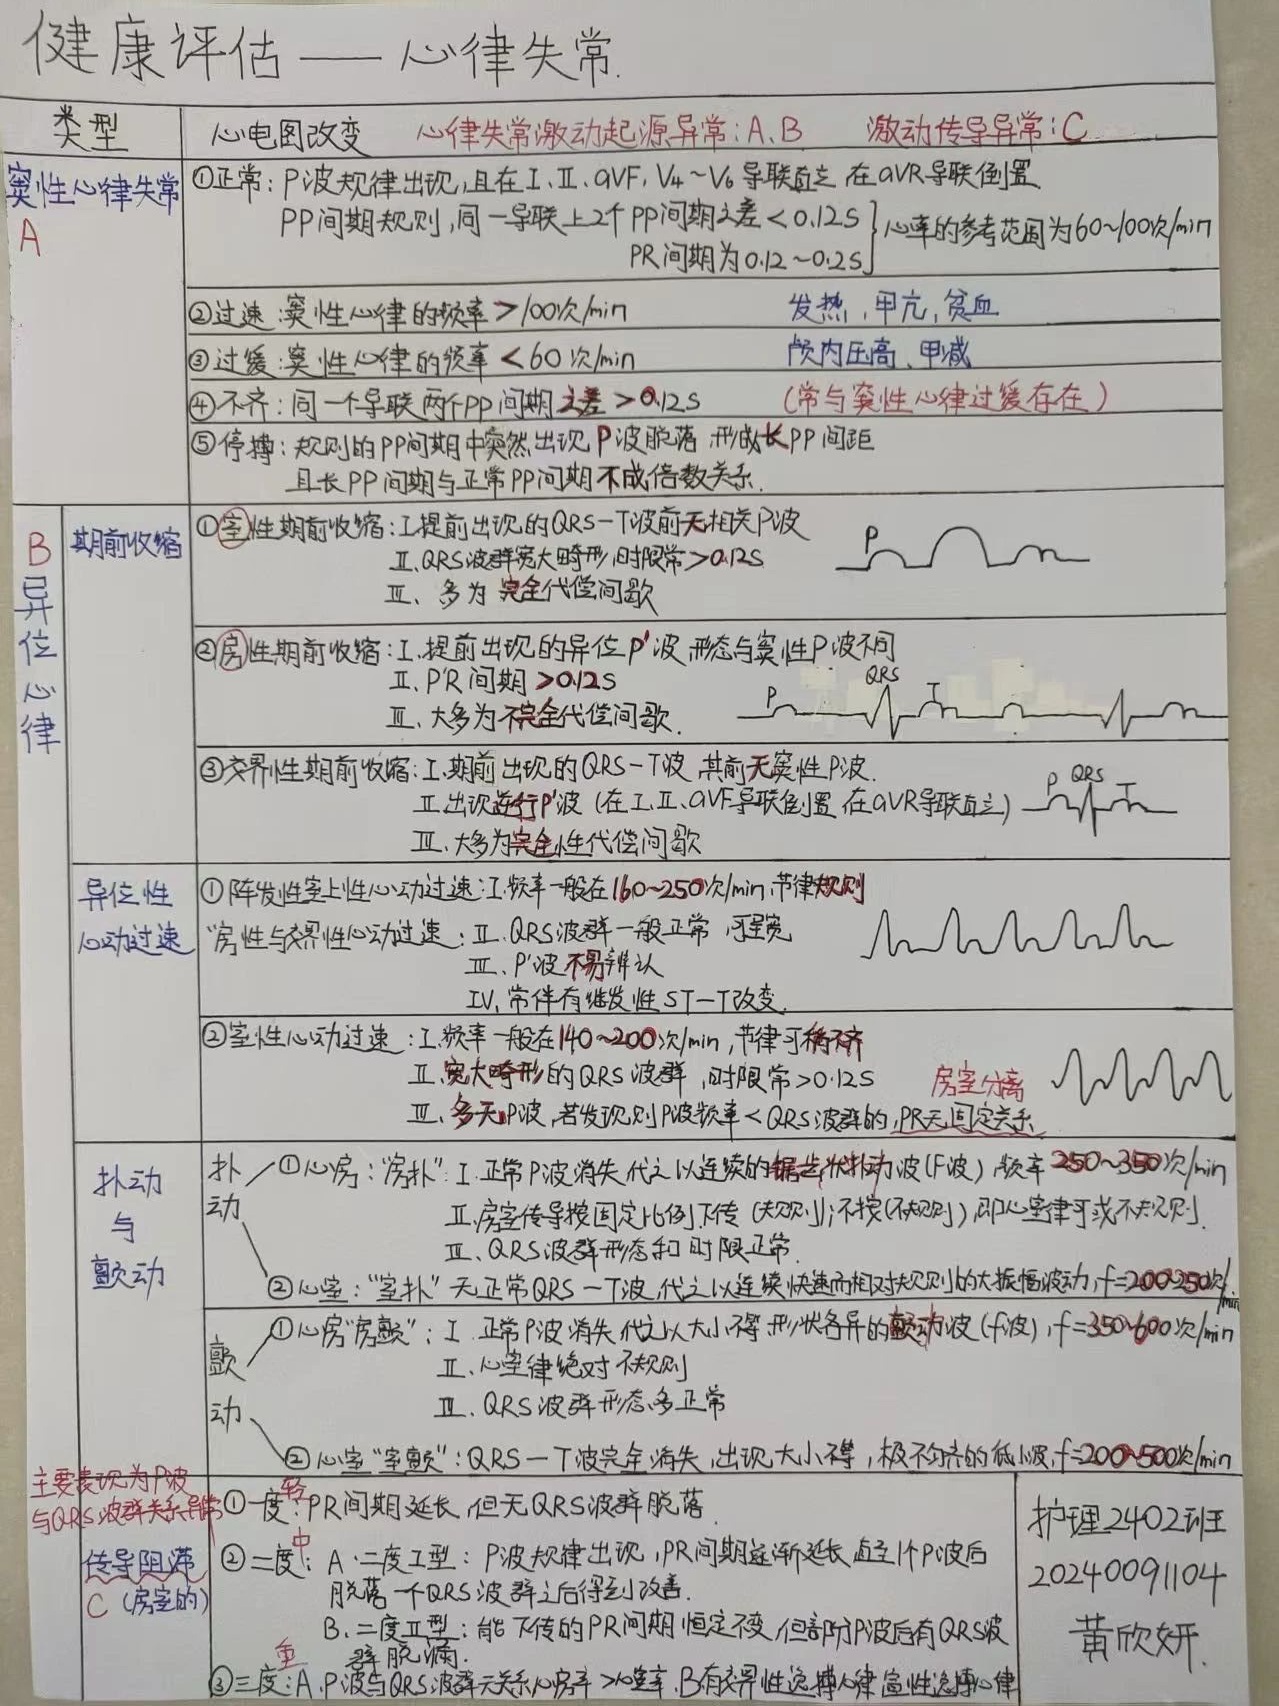 健康评估——心律失常
类型
心电图改变 心律失常激动起源异常:A.B 激动传导异常:C
窦性心律失常
A
①正常:P波规律出现,且在I、II、aVF,V4~V6导联直立 在aVR导联倒置
PP间期规则,同一导联上2个PP间期之差<0.12S
PR间期为0.12~0.2S
心率的参考范围为60~100次/min
②过速:窦性心律的频率>100次/min 发热,甲亢,贫血
③过缓:窦性心律的频率<60次/min 颅内压高、甲减
④不齐:同一个导联两个PP间期之差>0.12S (常与窦性心律过缓存在)
⑤停搏:规则的PP间期中突然出现P波脱落 形成长PP间距
且长PP间期与正常PP间期不成倍数关系.
B
异位心律
期前收缩
①室性期前收缩:I.提前出现的QRS-T波前无相关P波
II.QRS波群宽大畸形,时限常>0.12S
III、多为完全代偿间歇
P
②房性期前收缩:I.提前出现的异位P'波 形态与窦性P波不同
II.P'R间期>0.12S
III.大多为不完全代偿间歇.
P QRS T
③交界性期前收缩:I.期前出现的QRS-T波 其前无窦性P波.
II.出现逆行P'波(在I.II.aVF导联倒置 在aVR导联直立)
III.大多为完全性代偿间歇
P QRS T
异位性
心动过速
①阵发性室上性心动过速:I.频率一般在160~250次/min,节律规则
"房性与交界性心动过速:II.QRS波群一般正常 可呈宽
III.P'波不易辨认
IV.常伴有继发性ST-T改变.
②室性心动过速:I.频率一般在140~200次/min,节律可稍不齐
II.宽大畸形的QRS波群,时限常>0.12S 房室分离
III.多无P波,若发现则P波频率<QRS波群的,PR无固定关系
扑动
与
颤动
扑动
①心房:"房扑":I.正常P波消失 代之以连续的锯齿状扑动波(F波),频率250~350次/min
II.房室传导按固定比例下传(规则);不按(不规则),即心室律可或不规则.
III.QRS波群形态和时限正常
②心室:"室扑"无正常QRS-T波,代之以连续快速而相对规则的大振幅波动,f=200~250次/min
颤动
①心房"房颤":I.正常P波消失 代之以大小不等 形状各异的颤动波(f波),f=350~600次/min
II.心室律绝对不规则
III.QRS波群形态多正常
②心室"室颤":QRS-T波完全消失,出现大小不等,极不匀齐的低小波,f=200~500次/min
主要表现为P波
与QRS波群关系异常
传导阻滞
C(房室的)
①一度:轻 PR间期延长,但无QRS波群脱落
②二度:中 A.二度I型:P波规律出现,PR间期逐渐延长 直至1个P波后
脱落一个QRS波群之后得到改善.
B.二度II型:能下传的PR间期恒定不变,但部分P波后有QRS波
群脱漏.
重
③三度:A.P波与QRS波群无关系 心房率>心室率.B有交界性逸搏心律 室性逸搏心律
护理2402班
20240091104
黄欣妍.